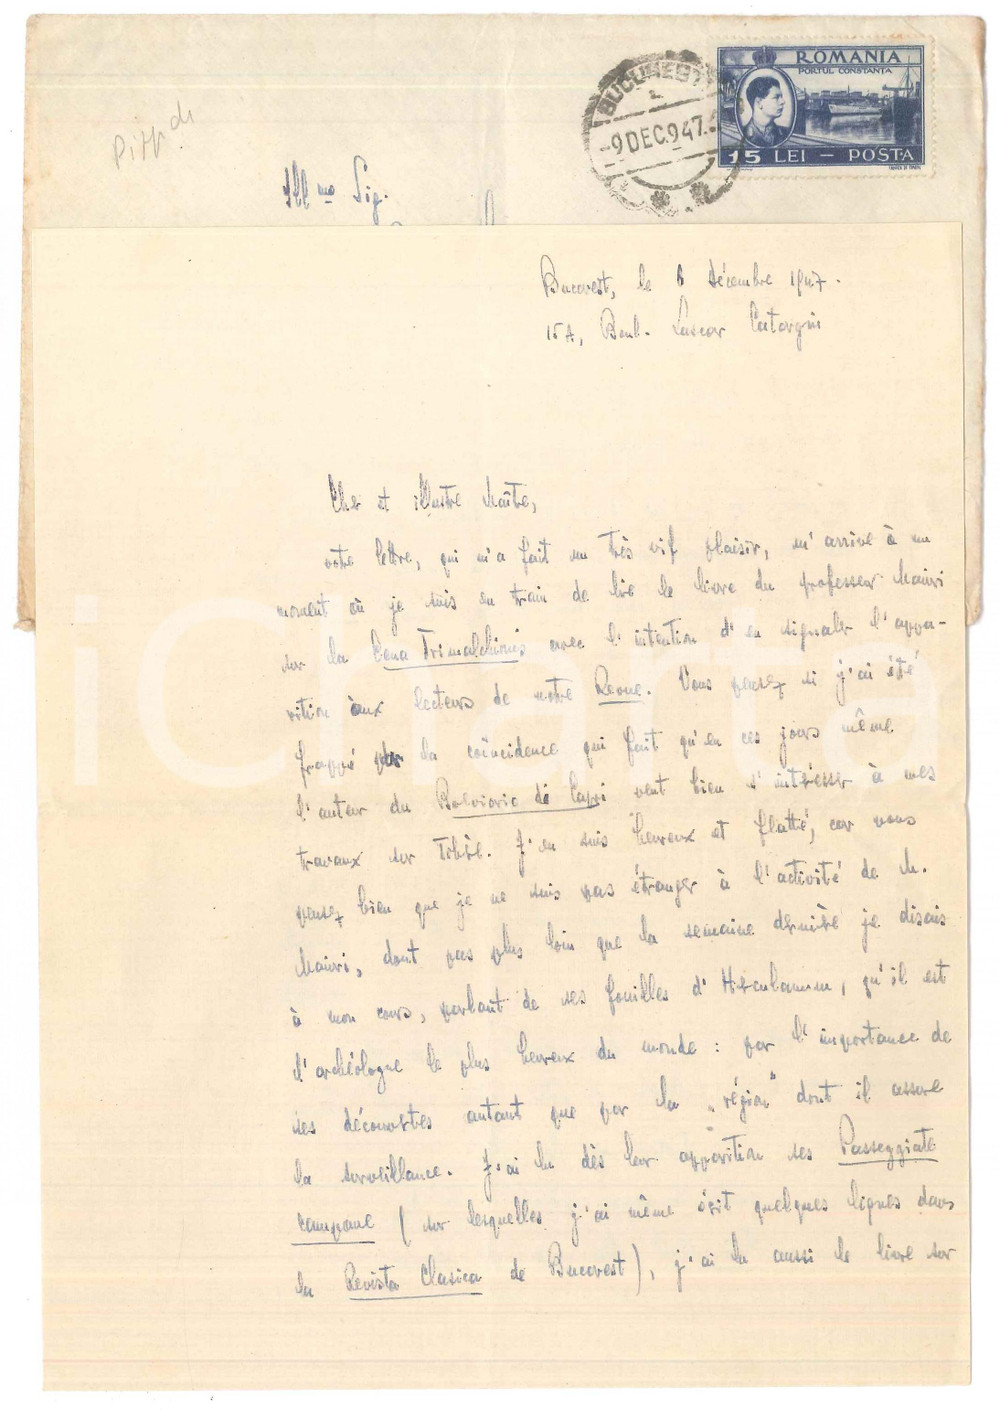 ROMANIA
PORTUL CONSTANTA
15 LEI - POSTA
BUCUREȘTI
2
-9 DEC. 947.
Ill mo Sig.
Bucarest, le 6 décembre 1947.
15A, Boul. Lascar Catargiu
Cher et illustre Maître,
votre lettre, qui m'a fait un très vif plaisir, m'arrive à un
moment où je suis en train de lire le livre du professeur Maiuri
sur la Cena Trimalchionis avec l'intention d'en signaler l'appa-
rition aux lecteurs de notre Revue. Vous pensez si j'ai été
frappé par la coïncidence qui fait qu'en ces jours même
l'auteur du Breviario di Capri veut bien s'intéresser à mes
travaux sur Tibère. J'en suis heureux et flatté, car vous
pensez bien que je ne suis pas étranger à l'activité de M.
Maiuri, dont pas plus loin que la semaine dernière je disais
à mon cours, parlant de ses fouilles d'Herculanum, qu'il est
l'archéologue le plus heureux du monde : par l'importance de
ses découvertes autant que par la „région" dont il assure
la surveillance. J'ai lu dès leur apparition ses Passeggiate
campane (sur lesquelles j'ai même écrit quelques lignes dans
la Revista Clasica de Bucarest), j'ai lu aussi le livre sur
iCharta